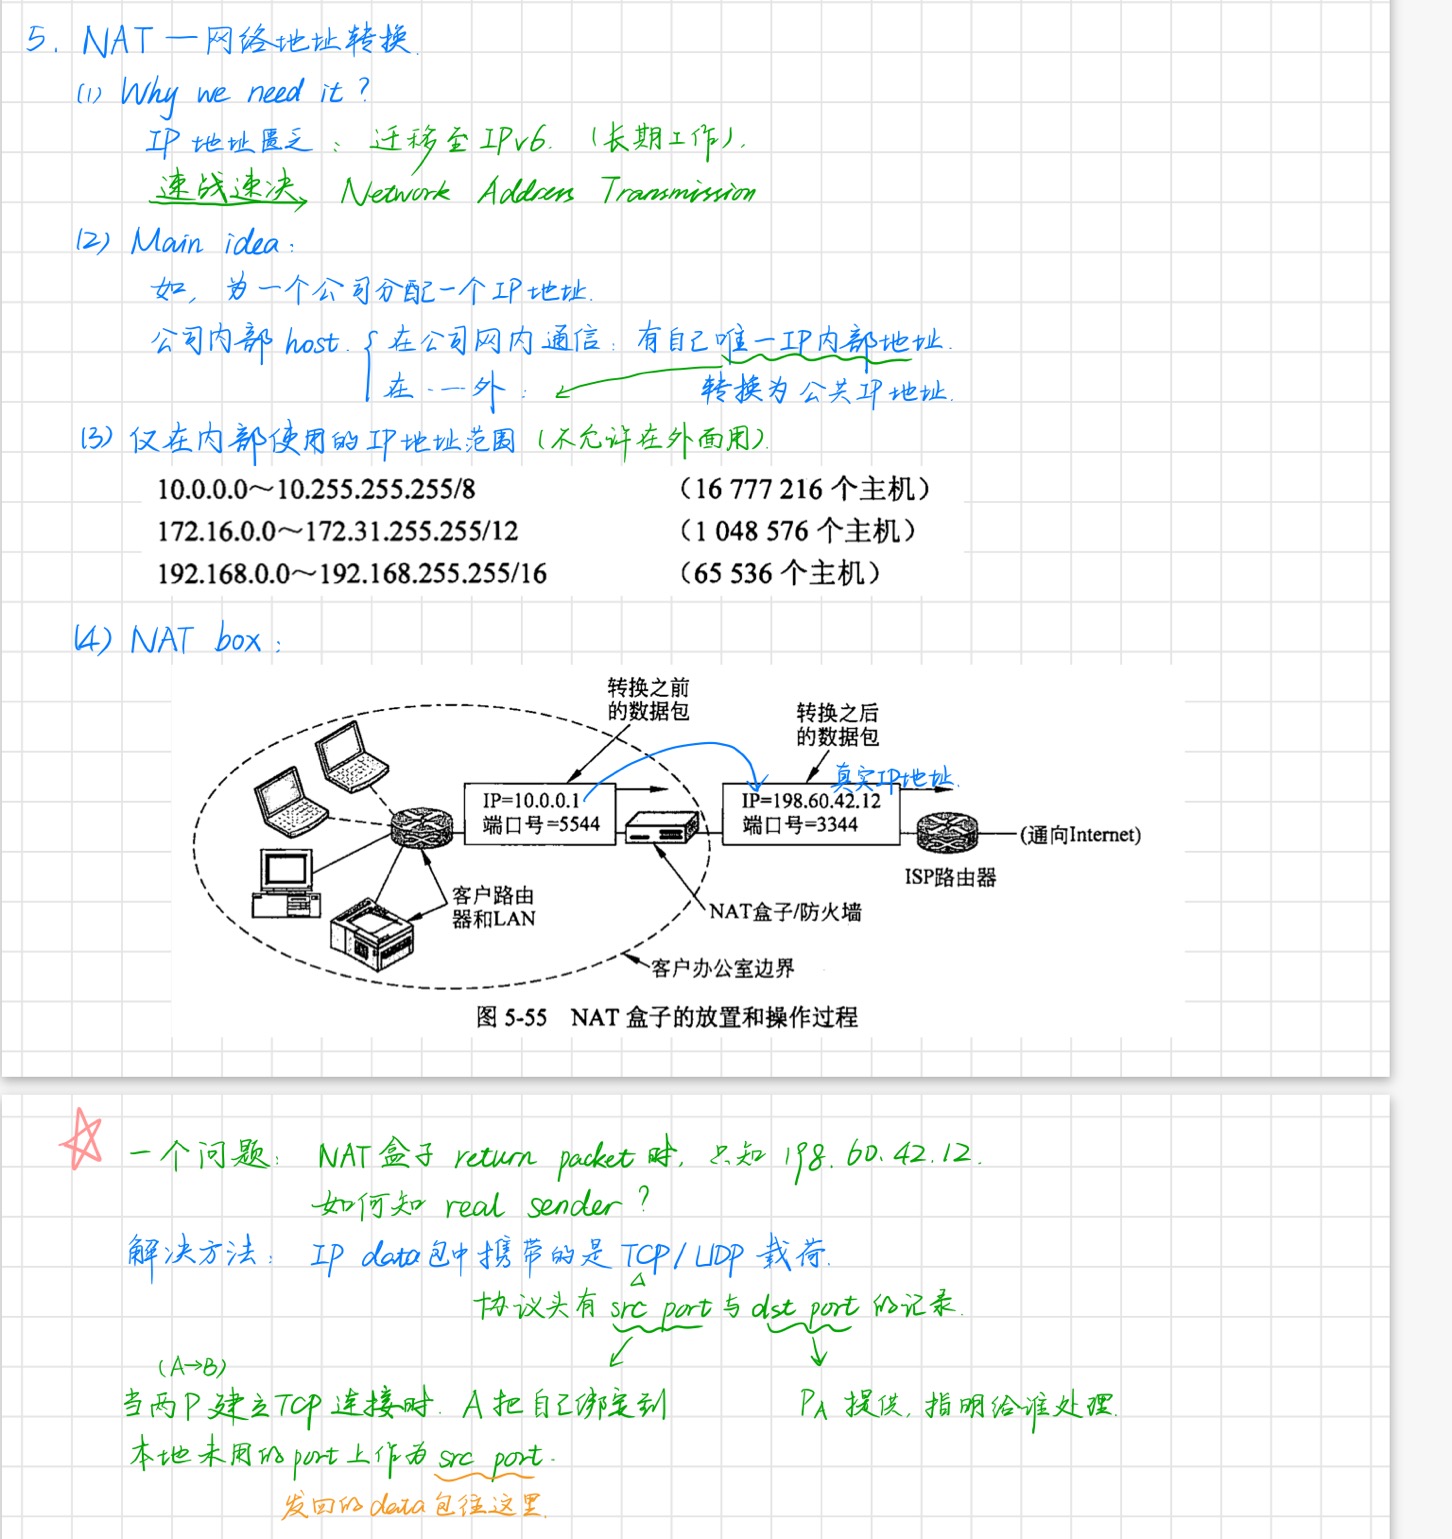 5. NAT — 网络地址转换.
(1) Why we need it?
IP 地址匮乏: 迁移至 IPv6. (长期工作).
速战速决 Network Address Transmission
(2) Main idea:
如, 为一个公司分配一个 IP 地址.
公司内部 host. { 在公司网内通信: 有自己唯一IP内部地址.
在 ·一 外: 转换为公共 IP 地址.
(3) 仅在内部使用的 IP 地址范围 (不允许在外面用).
10.0.0.0～10.255.255.255/8 (16 777 216 个主机)
172.16.0.0～172.31.255.255/12 (1 048 576 个主机)
192.168.0.0～192.168.255.255/16 (65 536 个主机)
(4) NAT box:
转换之前
的数据包
转换之后
的数据包
真实IP地址.
IP=10.0.0.1
端口号=5544
IP=198.60.42.12
端口号=3344
(通向Internet)
ISP路由器
客户路由
器和LAN
NAT盒子/防火墙
客户办公室边界
图 5-55 NAT 盒子的放置和操作过程
一个问题: NAT盒子 return packet 时, 只知 198.60.42.12.
如何知 real sender?
解决方法: IP data包中携带的是 TCP/UDP 载荷.
协议头有 src port 与 dst port 的记录.
(A→B)
当两P建立TCP连接时. A把自己绑定到
本地未用的port上作为 src port.
发回的data包往这里.
PA 提供, 指明给谁处理.